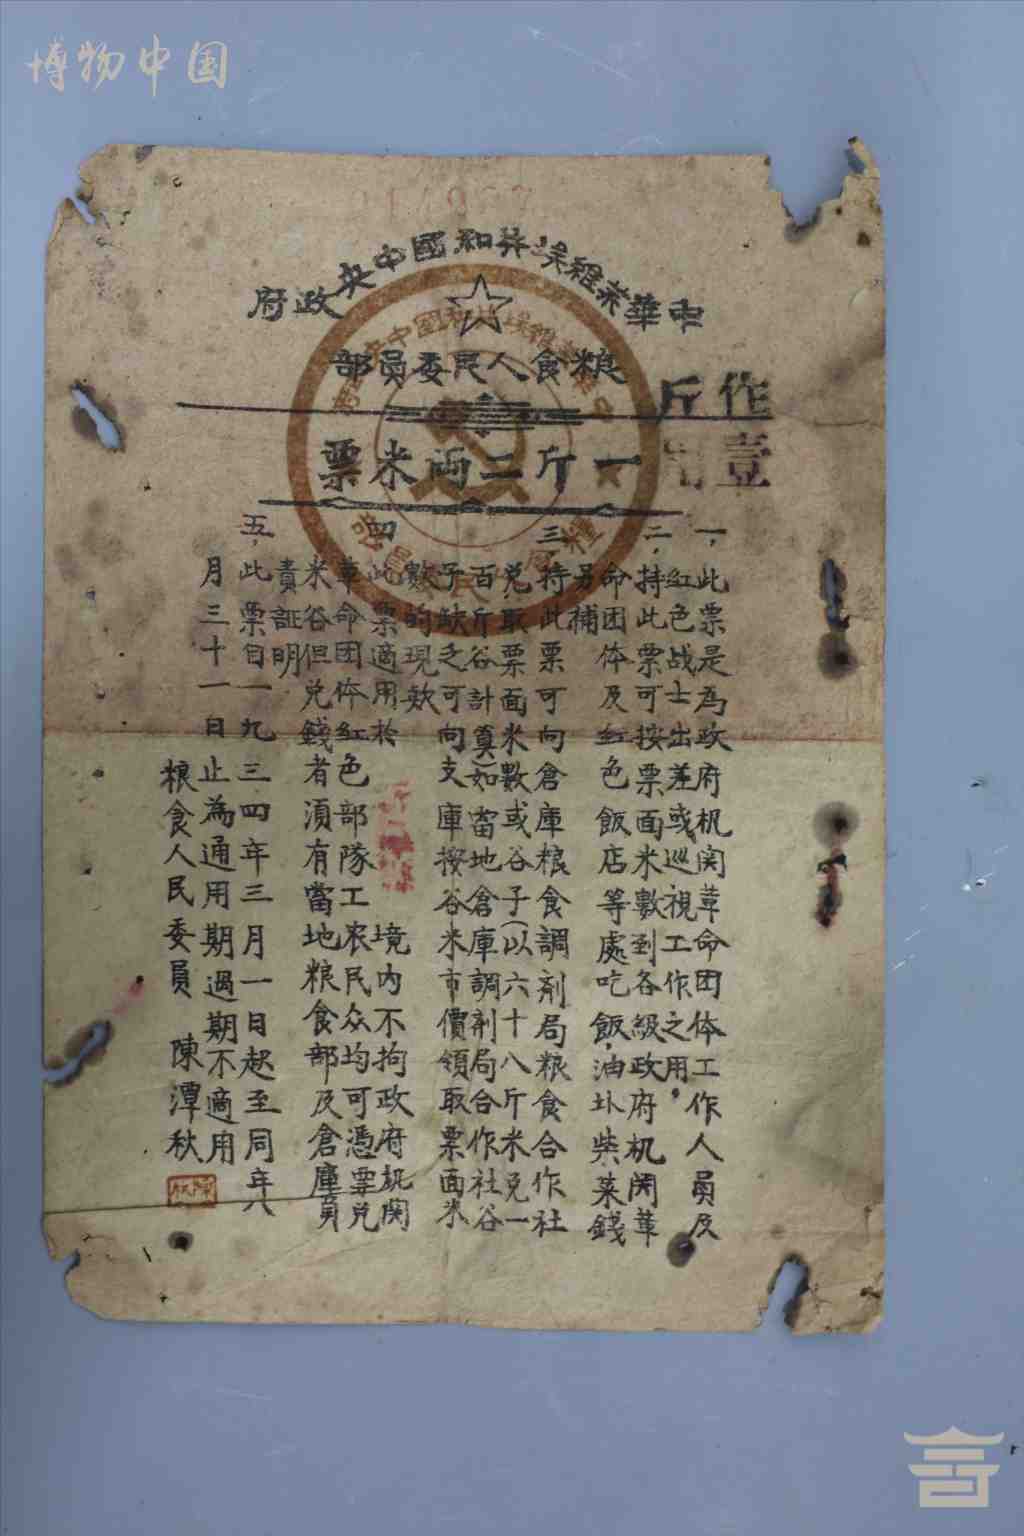 博物中国
中華苏維埃共和國中央政府
粮食人民委員部
作壹斤用
一斤二両米票
一，此票是為政府机関革命团体工作人員及
紅色战士出差或巡視工作之用，
二，持此票可按票面米數到各級政府机関革
命团体及紅色飯店等處吃飯，油圤柴菜錢
另補
三，持此票可向倉庫粮食調剂局粮食合作社
兑取票面米數或谷子(以六十八斤米兑一
百斤谷計算)如當地倉庫調剂局合作社谷
子缺乏可向支庫按谷米市價領取票面米
數的現欵
四，此票適用於 境内不拘政府机関
革命团体紅色部隊工农民众均可憑票兑
米谷但兑錢者須有當地粮食部及倉庫負
責証明
五，此票自一九三四年三月一日起至同年八
月三十一日止為通用期過期不適用
粮食人民委員 陳潭秋